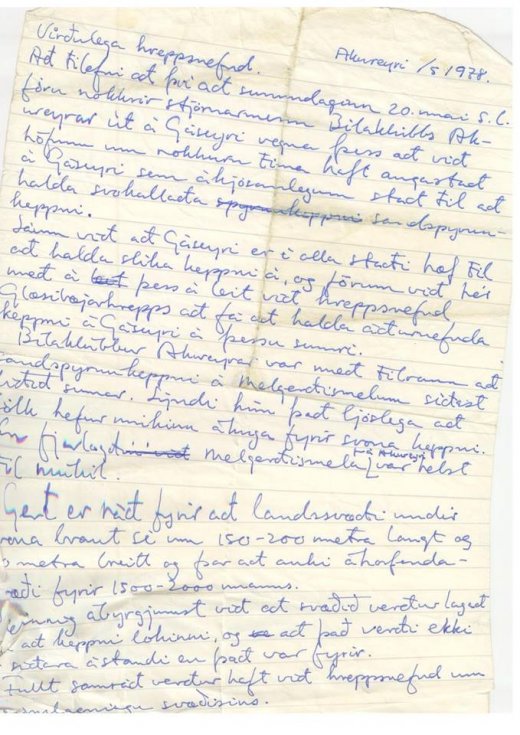 Virðulega hreppsnefnd.
Akureyri /5 1978.
Að tilefni að því að sunnudaginn 20. mai s.l.
fóru nokkrir stjórnarmenn Bílaklúbbs Ak-
ureyrar út á Gáseyri vegna þess að við
höfum um nokkurn tíma haft augastað
á Gáseyri sem ákjósanlegum stað til að
halda svokallaða spyrnukeppni sandspyrnu-
keppni.
Sáum við að Gáseyri er í alla staði hæf til
að halda slíka keppni á, og förum við hér
með á þess á leit við hreppsnefnd
Glæsibæjarhrepps að fá að halda áðurnefnda
keppni á Gáseyri á þessu sumri.
Bílaklúbbur Akureyrar var með tilraun að
sandspyrnukeppni á Melgerðismelum síðast
liðið sumar. Sýndi hún það ljóslega að
fólk hefur mikinn áhuga fyrir svona keppni.
En fjarlægð Melgerðismela frá Akureyri var helst
til mikil.
Gert er ráð fyrir að landssvæði undir
svona braut sé um 150-200 metra langt og
metra breitt og þar að auki áhorfenda-
svæði fyrir 1500-2000 manns.
Einnig ábyrgjumst við að svæðið verður lagað
að keppni lokinni, og að það verði ekki
í síðara ástandi en það var fyrir.
Fullt samráð verður haft við hreppsnefnd um
svæðisins.